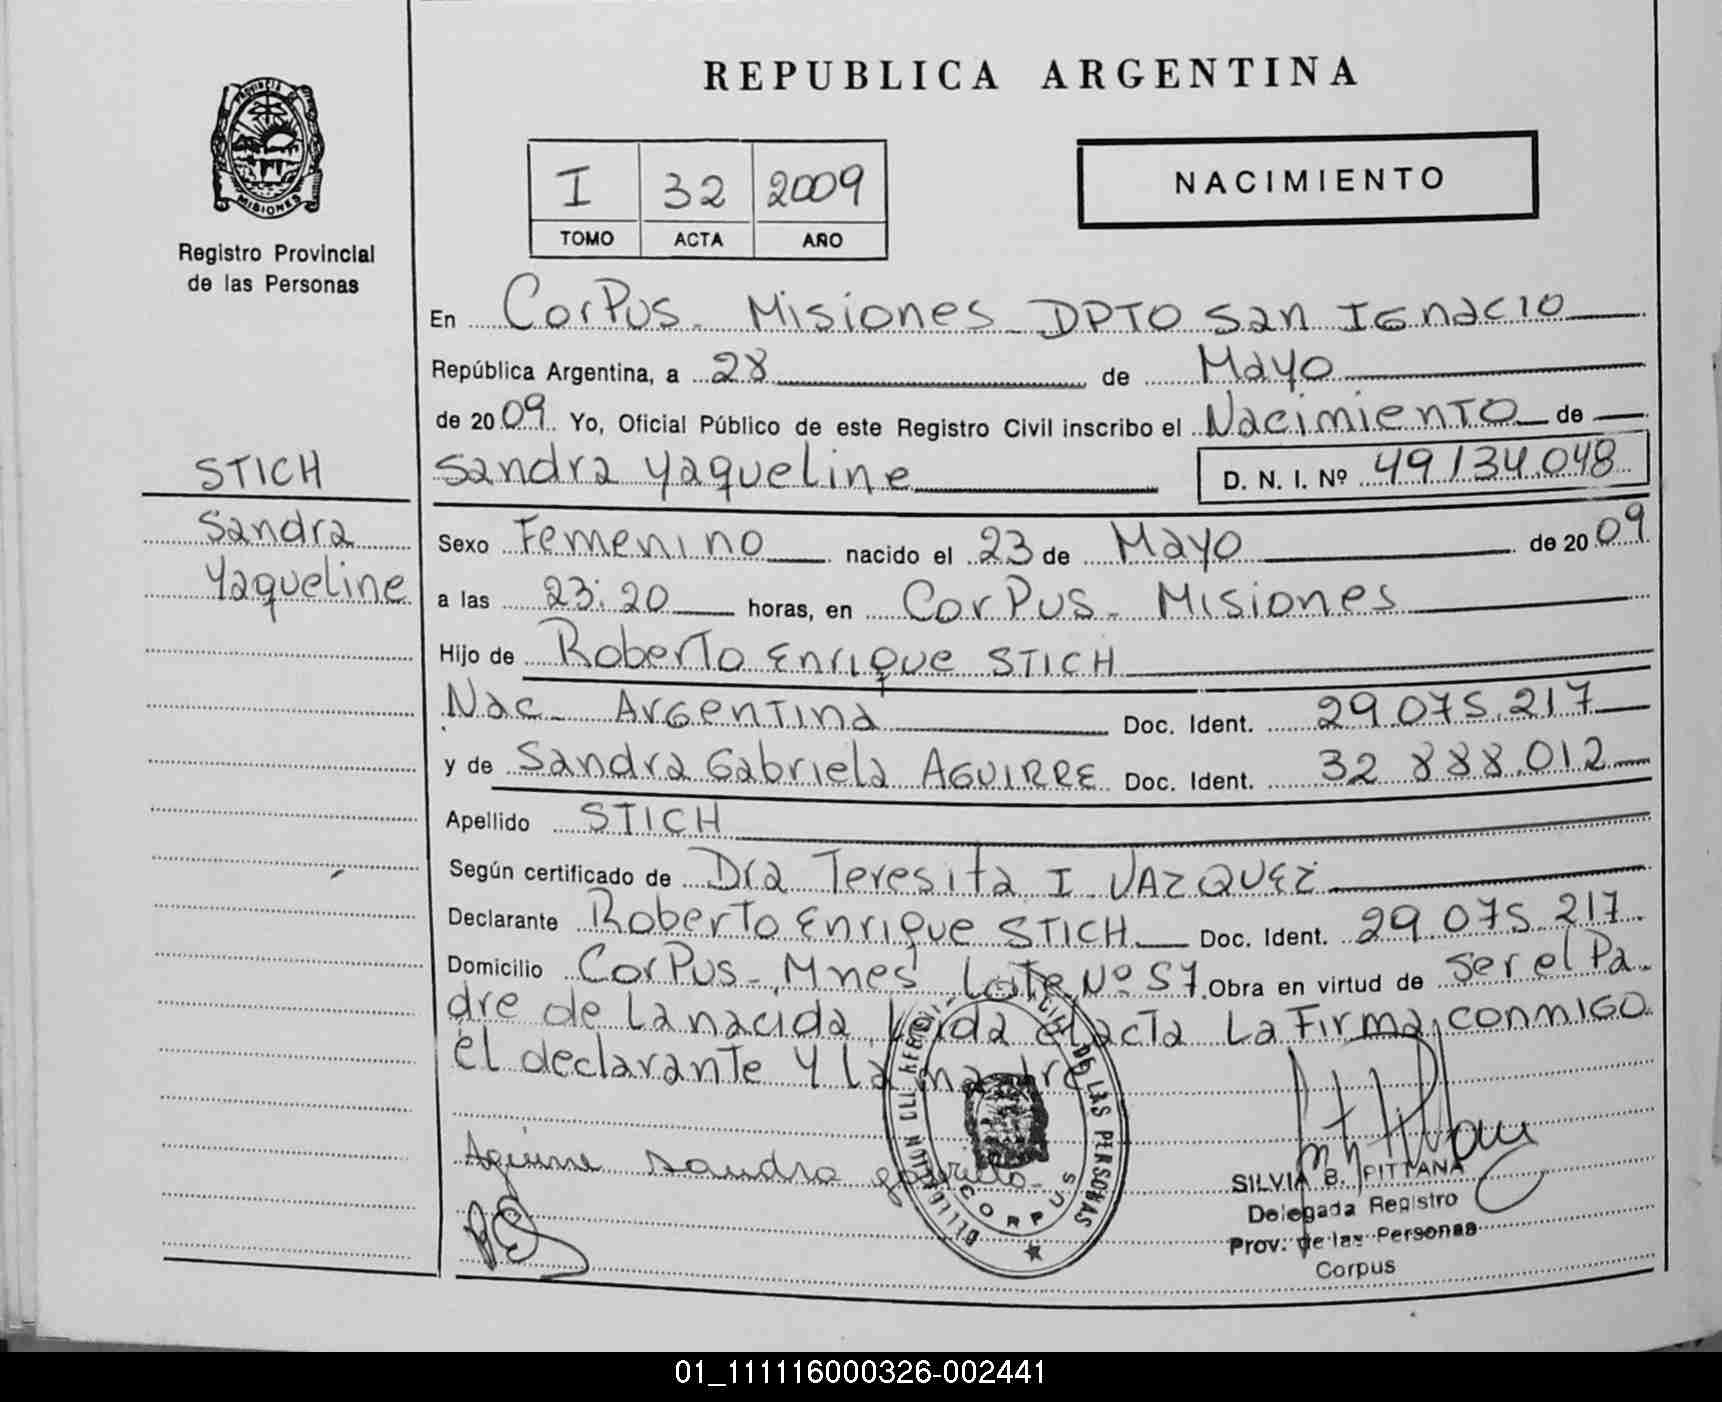 REPUBLICA ARGENTINA
PROVINCIA DE
MISIONES
Registro Provincial
de las Personas
I 32 2009
TOMO ACTA AÑO
NACIMIENTO
En Corpus - Misiones - DPTO San Ignacio
República Argentina, a 28 de Mayo
de 2009 Yo, Oficial Público de este Registro Civil inscribo el Nacimiento de
Sandra Yaqueline D. N. I. Nº 49.134.048
STICH
Sandra
Yaqueline
Sexo Femenino nacido el 23 de Mayo de 2009
a las 23:20 horas, en Corpus - Misiones
Hijo de Roberto Enrique STICH
Nac - Argentina Doc. Ident. 29.075.217
y de Sandra Gabriela AGUIRRE Doc. Ident. 32 888.012
Apellido STICH
Según certificado de Dra Teresita I VAZQUEZ
Declarante Roberto Enrique STICH Doc. Ident. 29.075.217
Domicilio Corpus - Mnes Lote Nº 57. Obra en virtud de ser el Pa-
dre de la nacida, Leida el acta La Firma, conmigo
el declarante y la madre
Aguirre Sandra Gabriela
DE LAS PERSONAS
CORPUS
SILVIA B. PITTANA
Delegada Registro
Prov. de las Personas
Corpus
01_111116000326-002441